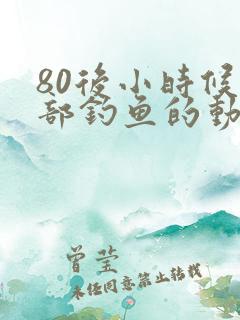 80後小時候
部釣魚的動
曾莹
未经同意禁止转载